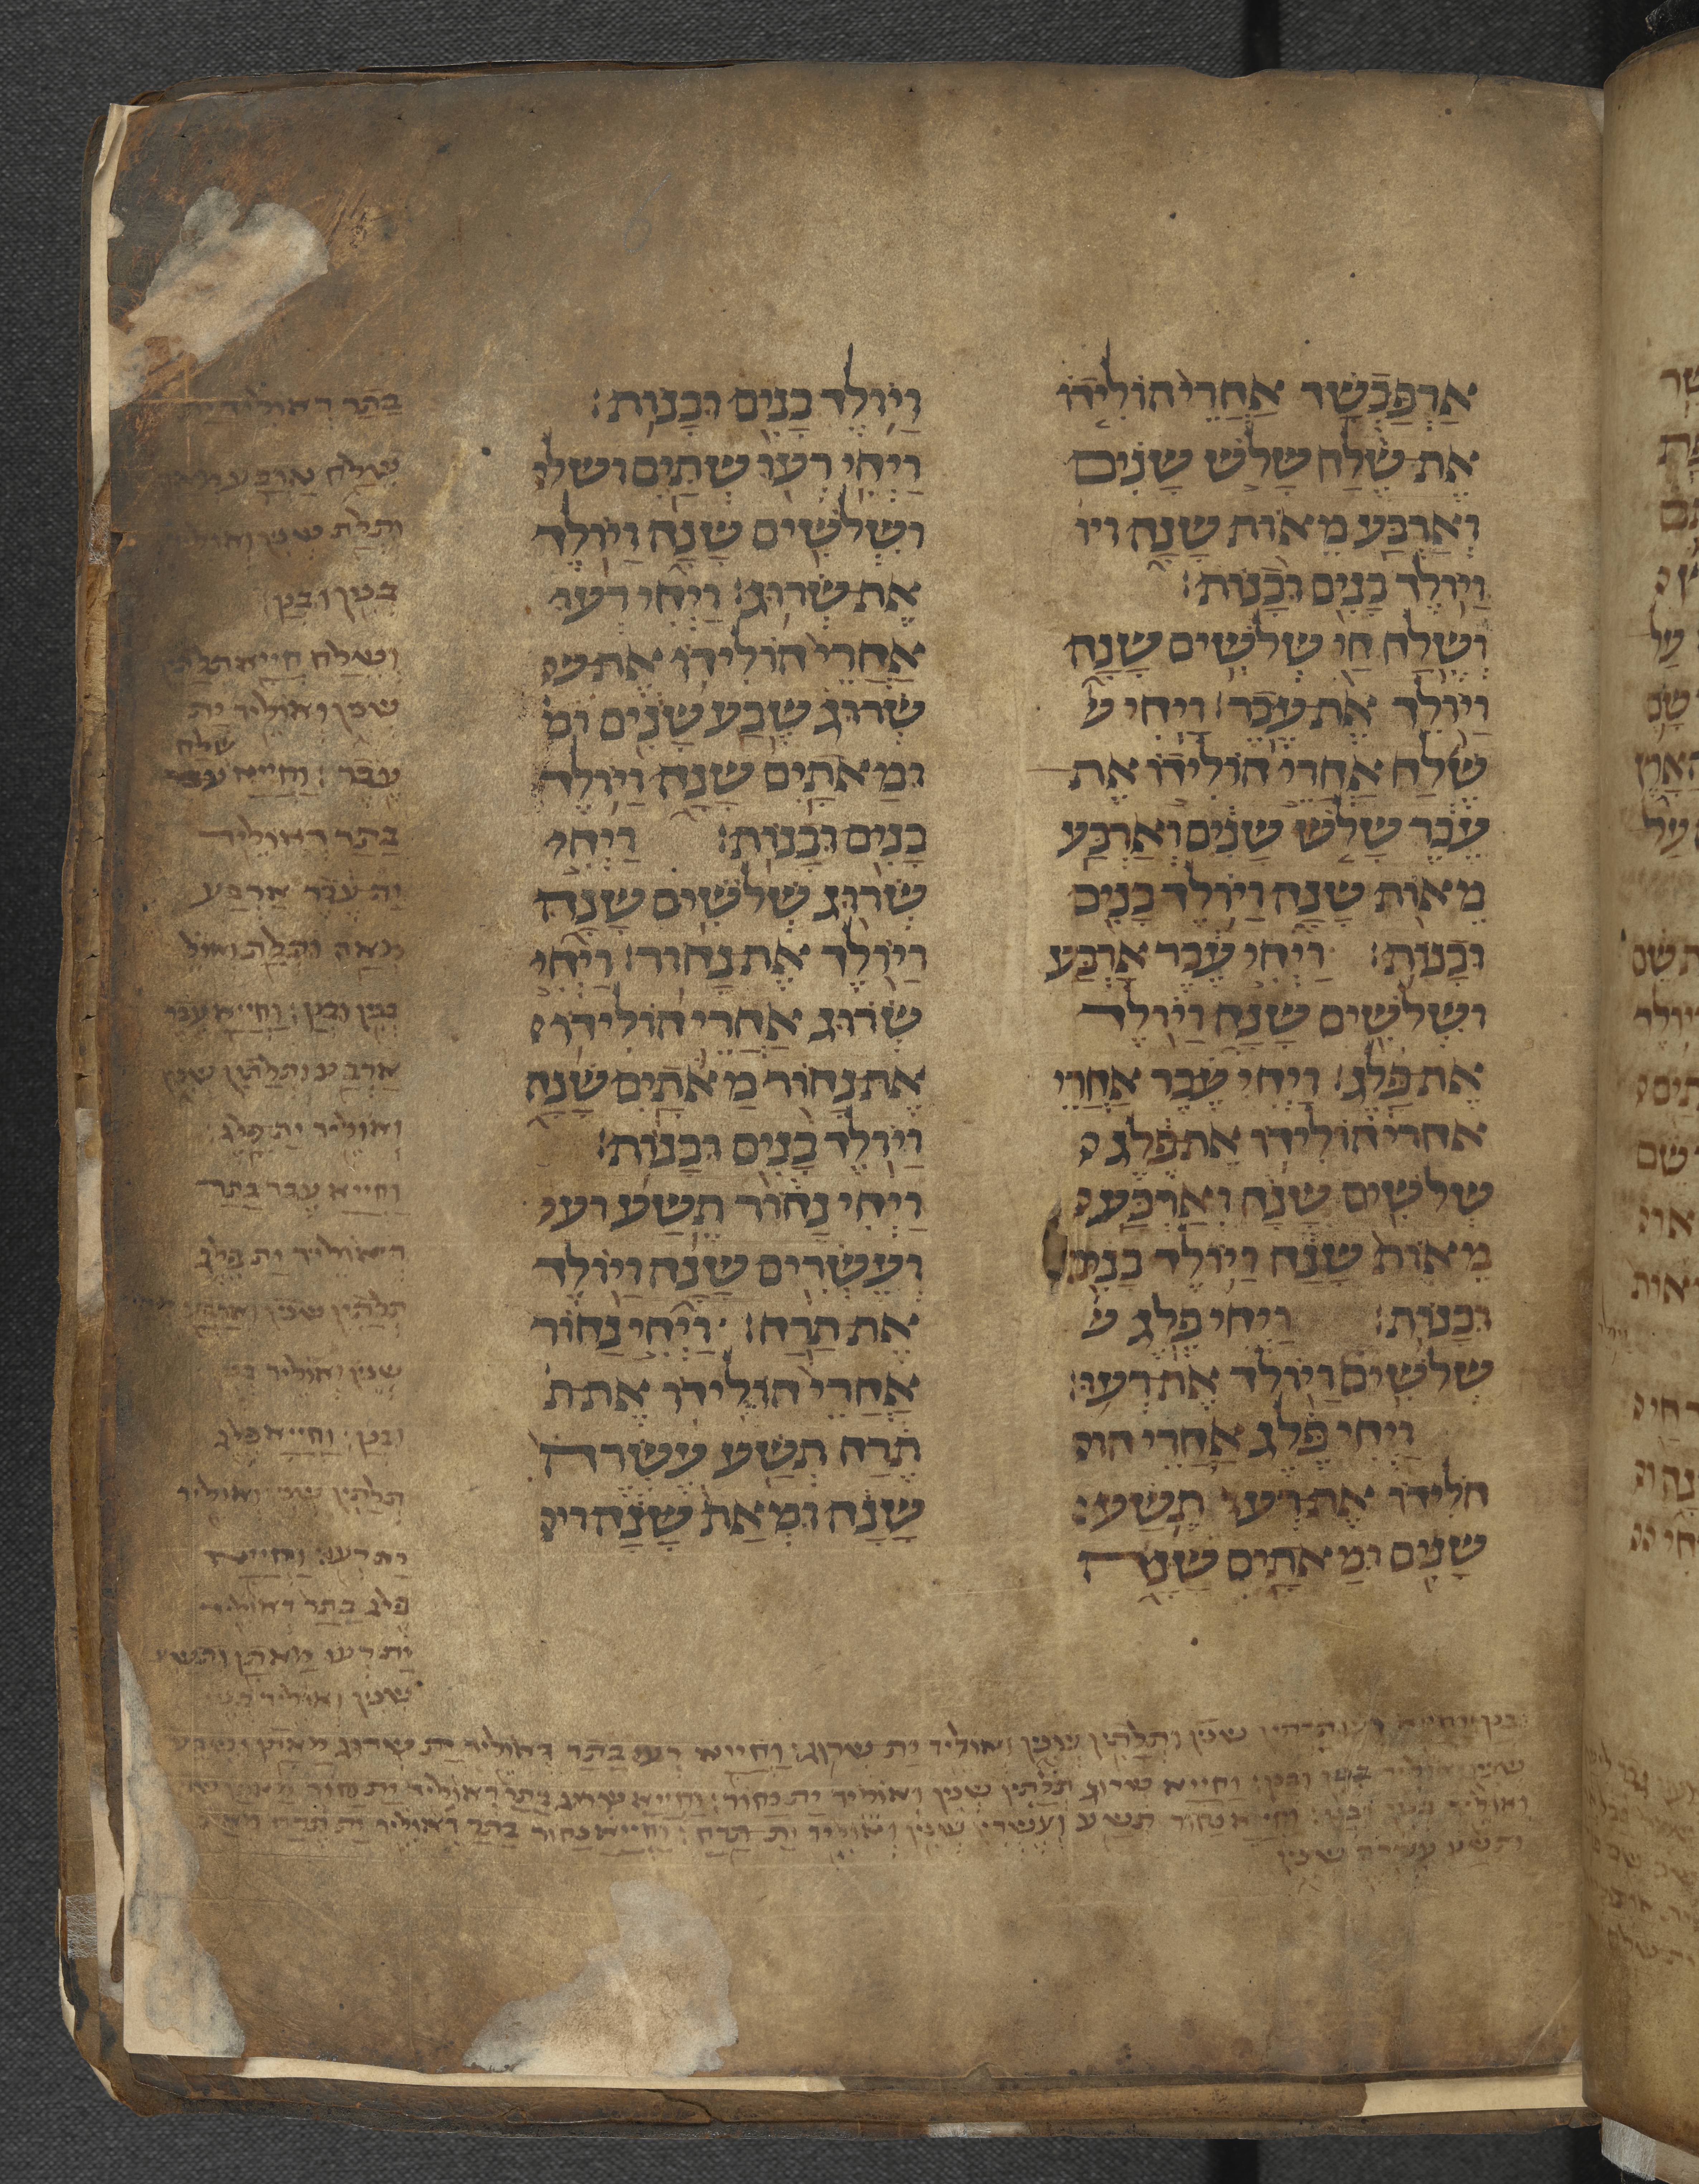 אַרְפַּכְשַׁד אַחֲרֵי הוֹלִידוֹ
אֶת שֶׁלַח שָׁלֹשׁ שָׁנִים
וְאַרְבַּע מֵאוֹת שָׁנָה ויו
וַיּוֹלֶד בָּנִים וּבָנוֹת׃
וְשֶׁלַח חַי שְׁלֹשִׁים שָׁנָה
וַיּוֹלֶד אֶת עֵבֶר׃ וַיְחִי ש
שֶׁלַח אַחֲרֵי הוֹלִידוֹ אֶת
עֵבֶר שָׁלֹשׁ שָׁנִים וְאַרְבַּע
מֵאוֹת שָׁנָה וַיּוֹלֶד בָּנִים
וּבָנוֹת׃ וַיְחִי עֵבֶר אַרְבַּע
וּשְׁלֹשִׁים שָׁנָה וַיּוֹלֶד
אֶת פָּלֶג׃ וַיְחִי עֵבֶר אַחֲרֵי
אחרי הוֹלִידוֹ אֶת פֶּלֶג
שְׁלֹשִׁים שָׁנָה וְאַרְבַּע
מֵאוֹת שָׁנָה וַיּוֹלֶד בָּנִים
וּבָנוֹת׃ וַיְחִי פֶלֶג ש
שְׁלֹשִׁים וַיּוֹלֶד אֶת רְעוּ׃
וַיְחִי פֶלֶג אַחֲרֵי הו
הֹלִידוֹ אֶת רְעוּ תֵּשַׁע
שָׁנִים וּמָאתַיִם שָׁנָה
וַיּוֹלֶד בָּנִים וּבָנוֹת׃
וַיְחִי רְעוּ שְׁתַּיִם ושלו
וּשְׁלֹשִׁים שָׁנָה וַיּוֹלֶד
אֶת שְׂרוּג׃ וַיְחִי רְעוּ
אַחֲרֵי הוֹלִידוֹ אֶת ש
שְׂרוּג שֶׁבַע שָׁנִים ומ
וּמָאתַיִם שָׁנָה וַיּוֹלֶד
בָּנִים וּבָנוֹת׃ וַיְחִי
שְׂרוּג שְׁלֹשִׁים שָׁנָה
וַיּוֹלֶד אֶת נָחוֹר׃ וַיְחִי
שְׂרוּג אַחֲרֵי הוֹלִידוֹ
אֶת נָחוֹר מָאתַיִם שָׁנָה
וַיּוֹלֶד בָּנִים וּבָנוֹת׃
וַיְחִי נָחוֹר תֵּשַׁע ועש
וְעֶשְׂרִים שָׁנָה וַיּוֹלֶד
אֶת תָּרַח׃ וַיְחִי נָחוֹר
אַחֲרֵי הוֹלִידוֹ אֶת ת
תֶּרַח תְּשַׁע עֶשְׂרֵה
שָׁנָה וּמְאַת שָׁנָה ויו
בָּתַר דְּאוֹלִיד יַת
שלח אַרְבַּע
ותלת שנין ואוליד
בנין ובנן
ושלח חייא תלתין
שנין ואוליד ית
עבר׃ וחייא עבר
שלח
בתר דאוליד
ית עבר ארבע
מאה ותלת
בנין ובנן׃ וחייא עבר
ארבע ותלתין שנין
ואוליד ית פלג׃
וחייא עבר בתר
דאוליד ית פלג
תלתין שנין וארבע
שנין ואוליד
ובנן׃ וחייא פלג
תלתין שנין ואוליד
ית רעו׃ וחייא
פלג בתר דאוליד
ית רעו מאתן ותשע
שנין ואוליד
בנן וחייא רעו תרתין שנין ותלתין שנין ואוליד ית שרוג׃ וחייא רעו בתר דאוליד ית שרוג מאתן ושבע
שנין ואוליד בנין ובנן׃ וחייא שרוג תלתין שנין ואוליד ית נחור׃ וחייא שרוג בתר דאוליד ית נחור מאתן
ואוליד בנין ובנן׃ וחייא נחור תשע ועשרין שנין ואוליד ית תרח׃ וחייא נחור בתר דאוליד ית תרח
ותשע עשרה שנין